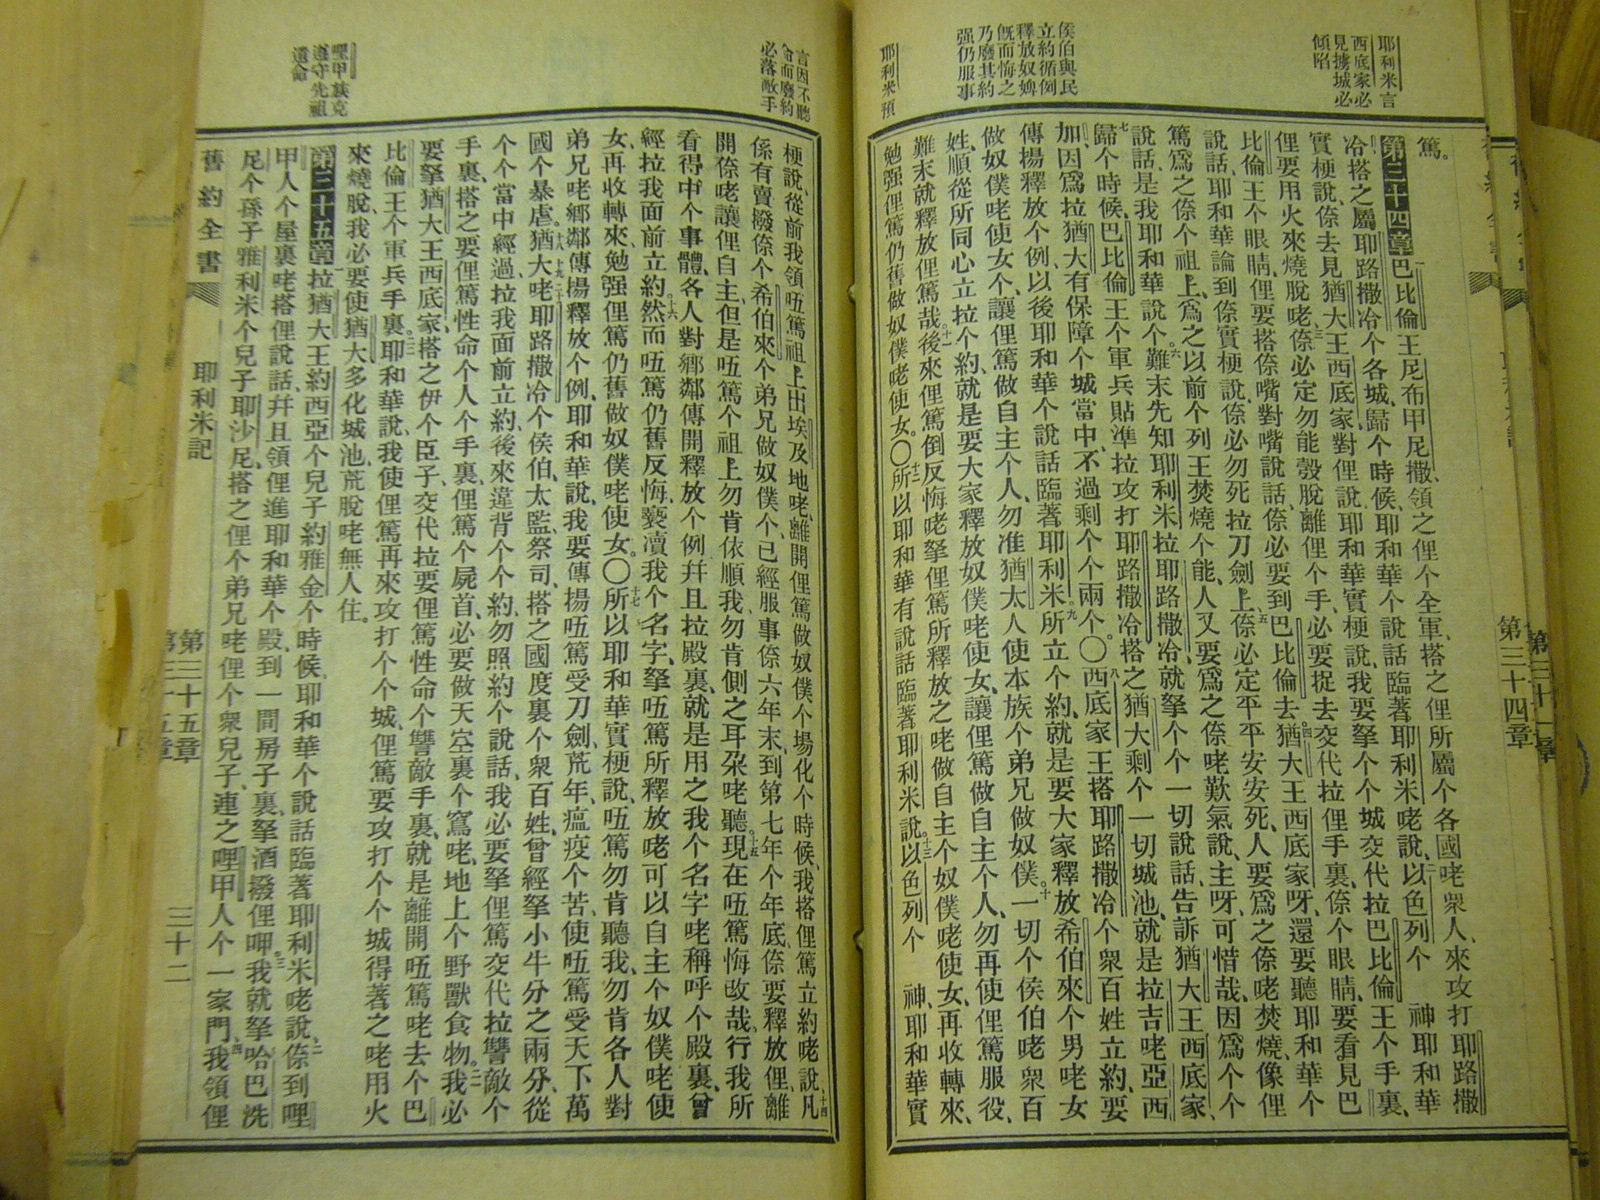 耶利米言
西底家必
見擄城必
傾陷
侯伯與民
立約循例
釋放奴婢
旣而悔之
乃廢其約
强仍服事
耶利米預
第三十四章
篤。
第三十四章 一巴比倫王尼布甲尼撒、領之俚个全軍、搭之俚所屬个各國咾衆人、來攻打耶路撒
冷搭之屬耶路撒冷个各城、歸个時候、耶和華个說話臨著耶利米咾說、二以色列个 神耶和華
實梗說、倷去見猶大王西底家對俚說、耶和華實梗說、我要拏个个城交代拉巴比倫王个手裏、
俚要用火來燒脫咾、三倷必定勿能彀脫離俚个手、必要捉去交代拉俚手裏、倷个眼睛、要看見巴
比倫王个眼睛、俚要搭倷嘴對嘴說話、倷必要到巴比倫去。四猶大王西底家呀、還要聽耶和華个
說話、耶和華論到倷實梗說、倷必勿死拉刀劍上、五倷必定平平安安死、人要爲之倷咾焚燒、像俚
篤爲之倷个祖上、爲之以前个列王焚燒个能、人又要爲之倷咾歎氣說、主呀、可惜哉、因爲个个
說話、是我耶和華說个。六難末先知耶利米拉耶路撒冷、就拏个个一切說話、告訴猶大王西底家、
七歸个時候、巴比倫王个軍兵貼準拉攻打耶路撒冷、搭之猶大剩个一切城池、就是拉吉咾亞西
加、因爲拉猶大有保障个城當中、不過剩个个兩个。〇八西底家王搭耶路撒冷个衆百姓立約、要
傳揚釋放个例、以後耶和華个說話臨著耶利米。九所立个約、就是要大家釋放希伯來个男咾女
做奴僕咾使女个、讓俚篤做自主个人、勿准猶太人使本族个弟兄做奴僕。十一切个侯伯咾衆百
姓、順從所同心立拉个約、就是要大家釋放奴僕咾使女、讓俚篤做自主个人、勿再使俚篤服役、
難末就釋放俚篤哉。十一後來俚篤倒反悔咾、拏俚篤所釋放之咾做自主个奴僕咾使女、再收轉來、
勉强俚篤仍舊做奴僕咾使女。〇十二所以耶和華有說話臨著耶利米說、十三以色列个 神、耶和華實
言因不聽
命而廢約
必落敵手
哩甲族克
遵守先祖
遺命
梗說、從前我領㕶篤祖上出埃及地咾、離開俚篤做奴僕个場化个時候、我搭俚篤立約咾說、十四凡
係有賣撥倷个希伯來个弟兄做奴僕个、已經服事倷六年末、到第七年个年底、倷要釋放俚、離
開倷咾讓俚自主、但是㕶篤个祖上勿肯依順我、勿肯側之耳朶咾聽、十五現在㕶篤悔改哉、行我所
看得中个事體、各人對鄉鄰傳開釋放个例、幷且拉殿裏、就是用之我个名字咾稱呼个殿裏、曾
經拉我面前立約。十六然而㕶篤仍舊反悔、褻瀆我个名字、拏㕶篤所釋放咾可以自主个奴僕咾使
女、再收轉來、勉强俚篤仍舊做奴僕咾使女。〇十七所以耶和華實梗說、㕶篤勿肯聽我、勿肯各人對
弟兄咾鄉鄰傳揚釋放个例、耶和華說、我要傳揚㕶篤受刀劍、荒年、瘟疫个苦、使㕶篤受天下萬
國个暴虐。十八十九二十猶大咾耶路撒冷个侯伯、太監、祭司、搭之國度裏个衆百姓、曾經拏小牛分之兩分、從
个个當中經過、拉我面前立約、後來違背个个約、勿照約个說話、我必要拏俚篤交代拉讐敵个
手裏、搭之要俚篤性命个人个手裏、俚篤个屍首、必要做天空裏个窵咾、地上个野獸食物、二一我必
要拏猶大王西底家、搭之伊个臣子、交代拉要俚篤性命个讐敵手裏、就是離開㕶篤咾去个巴
比倫王个軍兵手裏。二二耶和華說、我使俚篤再來攻打个个城、俚篤要攻打个个城得著之咾用火
來燒脫、我必要使猶大多化城池、荒脫咾無人住。
第三十五章 拉猶大王約西亞个兒子約雅金个時候、耶和華个說話臨著耶利米咾說、二倷到哩
甲人个屋裏咾搭俚說話、幷且領俚進耶和華个殿、到一間房子裏、拏酒撥俚呷。三我就拏哈巴洗
尼个孫子雅利米个兒子耶沙尼、搭之俚个弟兄咾俚个衆兒子、連之哩甲人个一家門、四我領俚
舊約全書 耶利米記 第三十五章 三十二